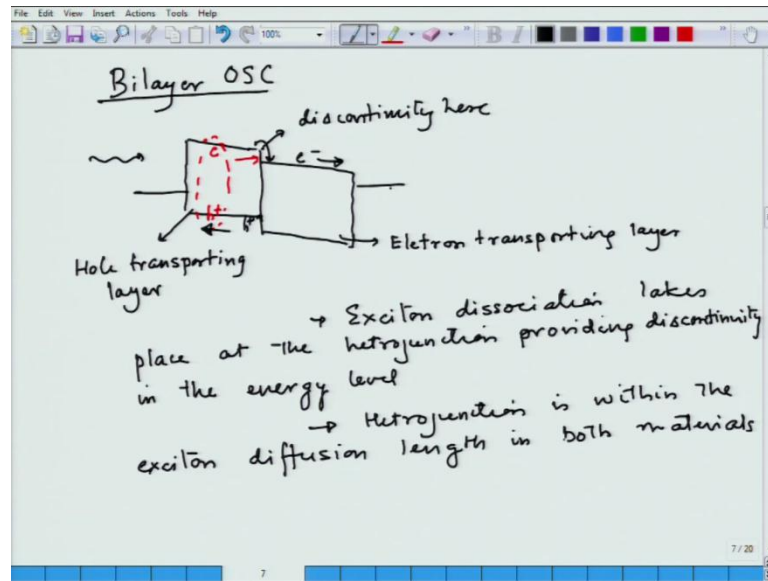 File Edit View Insert Actions Tools Help
100%
Bilayer OSC
discontinuity here
e⁻
e⁻
h⁺
h⁺
Eletron transporting layer
Hole transporting
layer
→ Exciton dissociation takes
place at the hetrojunction providing discontinuity
in the energy level
→ Hetrojunction is within the
exciton diffusion length in both materials
7 / 20
7